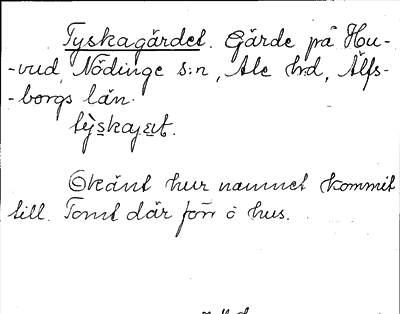 Tyskagärdet. Gärde på Hu-
-vud, Nödinge s:n, Ale hd, Älfs-
-borgs län.

Okänt hur namnet kommit
till. Tomt där förr o hus.